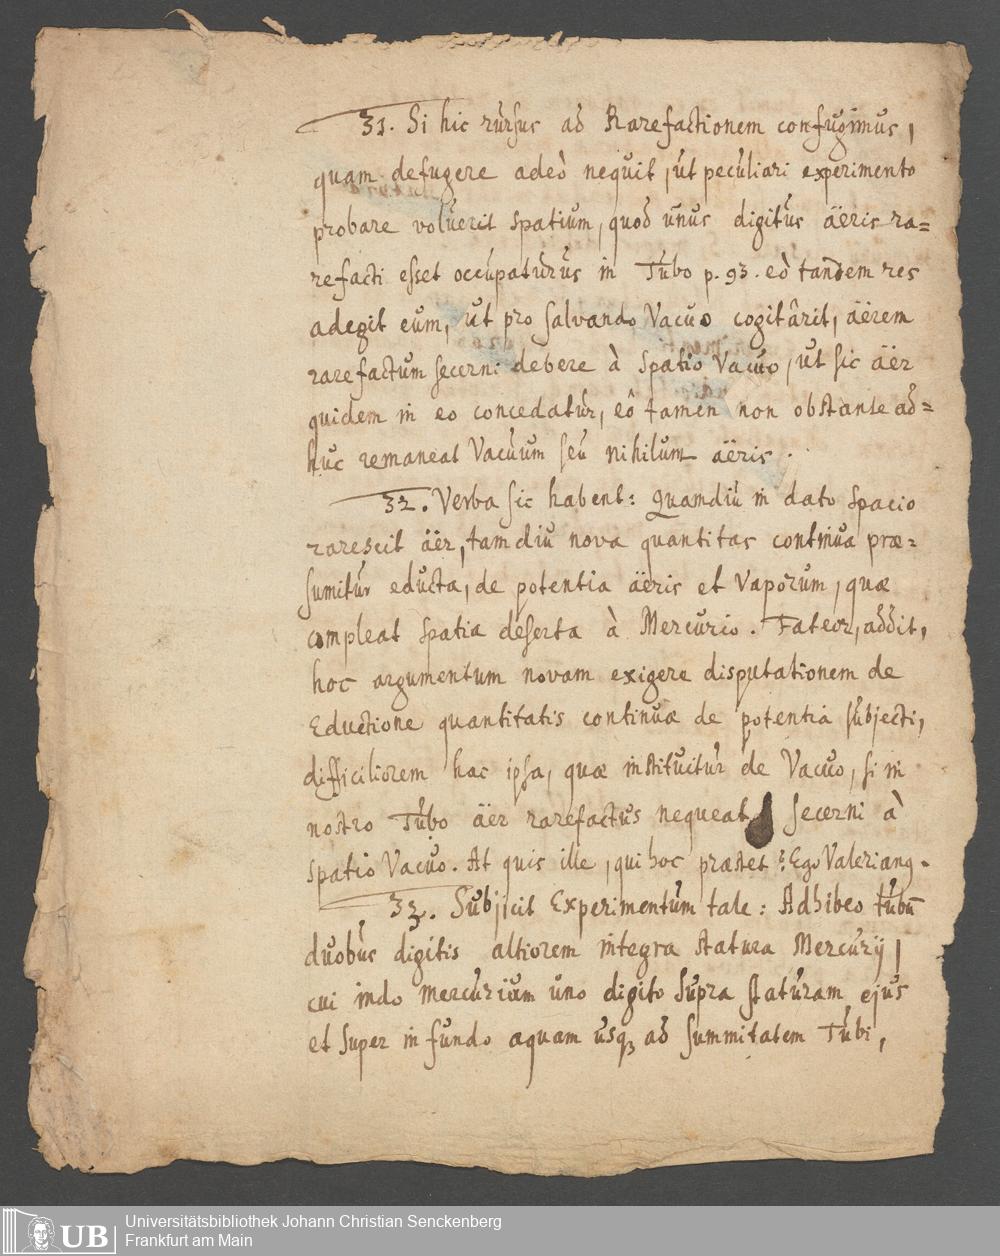 31. Si hic rursus ad Rarefactionem confugimus,
quam defugere adeò nequit, ut peculiari experimento
probare voluerit spatium, quod unus digitus äeris ra=
refacti esset occupaturus in Tubo p. 93. eò tandem res
adegit eum, ut pro salvando Vacuo cogitârit, äërem
rarefactum secerni debere à Spatio Vacuo, ut sic äër
quidem in eo concedatur, eô tamen non obstante ad=
huc remaneat Vacuum seu nihilum äëris.
32. Verba sic habent: Quamdiu in dato Spacio
rarescit äër, tam diu nova quantitas continua præ=
sumitur educta, de potentia äëris et Vaporum, quæ
compleat spatia deserta à Mercurio. Fateor, addit,
hoc argumentum novam exigere disputationem de
Eductione quantitatis continuæ de potentia subjecti,
difficiliorem hac ipsa, quæ instituitur de Vacuo, si in
nostro Tubo äër rarefactus nequeat secerni à
spatio Vacuo. At quis ille, qui hoc præstet? Ego Valeriang.
33. Subjicit Experimentum tale: Adhibeo tubū
duobus digitis altiorem integra statura Mercurij,
cui indo mercurium uno digito supra staturam ejus
et super infundo aquam usq3 ad summitatem Tubi,
Universitätsbibliothek Johann Christian Senckenberg
Frankfurt am Main
UB